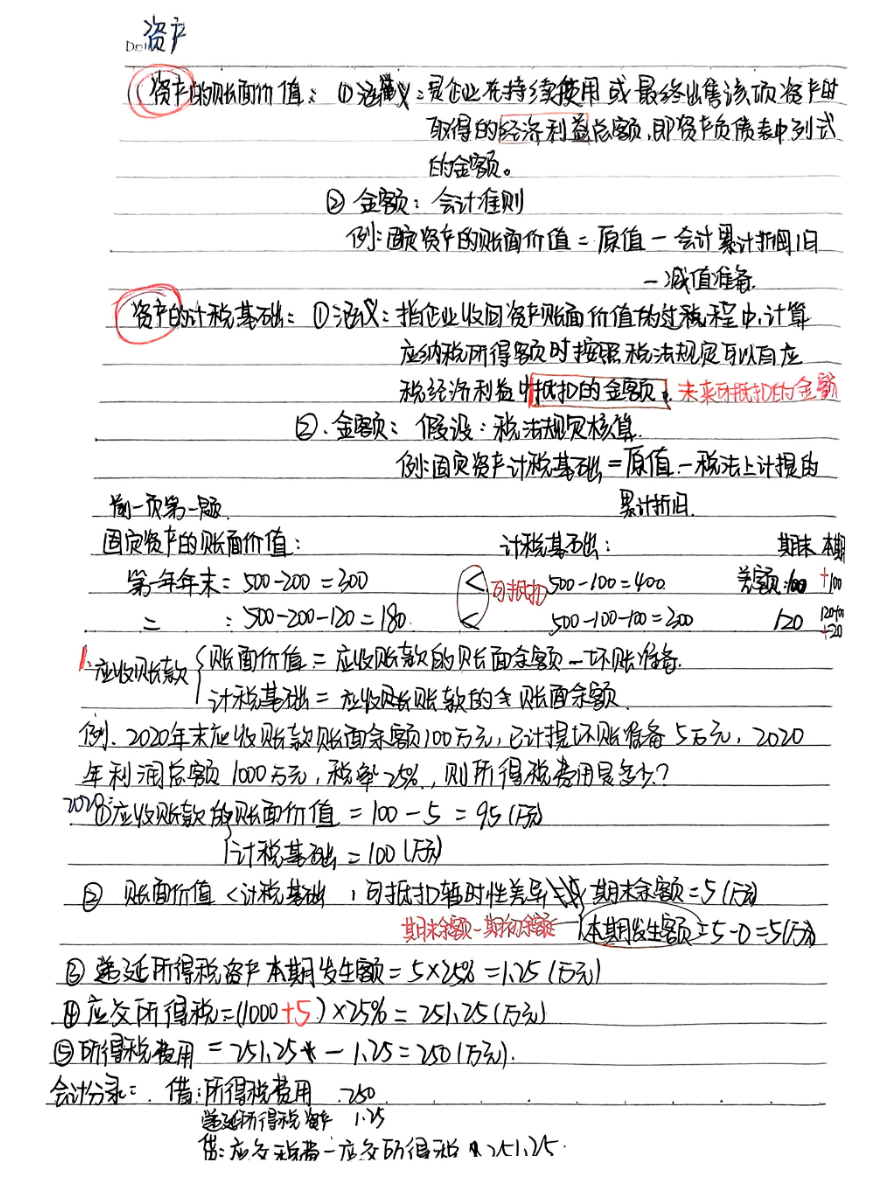 资产
资产的账面价值：①涵义：是企业在持续使用或最终出售该项资产时
取得的经济利益总额，即资产负债表中列式
的金额。
② 金额：会计准则
例：固定资产的账面价值 = 原值 - 会计累计折旧
- 减值准备.
资产的计税基础：①涵义：指企业收回资产账面价值的过程中，计算
应纳税所得额时按照税法规定可以自应
税经济利益中抵扣的金额. 未来可抵扣的金额
②.金额：假设：税法规定核算.
例：固定资产计税基础 = 原值 - 税法上计提的
累计折旧.
前一页第一题.
固定资产的账面价值： 计税基础： 期末 本期
第一年年末：500-200=300 < 可抵扣 500-100=400. 差额：100 +100
二 ：500-200-120=180. < 500-100-100=300 120 +20
1.应收账款 账面价值 = 应收账款的账面余额 - 坏账准备.
计税基础 = 应收账款的账面余额.
例. 2020年末应收账款账面余额100万元，已计提坏账准备5万元，2020
年利润总额1000万元，税率25%，则所得税费用是多少？
2020 ①应收账款的账面价值 = 100-5 = 95(万元)
计税基础 = 100(万元)
② 账面价值<计税基础，可抵扣暂时性差异 期末余额=5(万元)
期末余额-期初余额 本期发生额=5-0=5(万元)
③ 递延所得税资产本期发生额=5×25%=1.25(万元)
④应交所得税=(1000+5)×25%=251.25(万元)
⑤所得税费用 =251.25-1.25=250(万元).
会计分录：借：所得税费用 250
递延所得税资产 1.25
贷：应交税费-应交所得税 251.25.